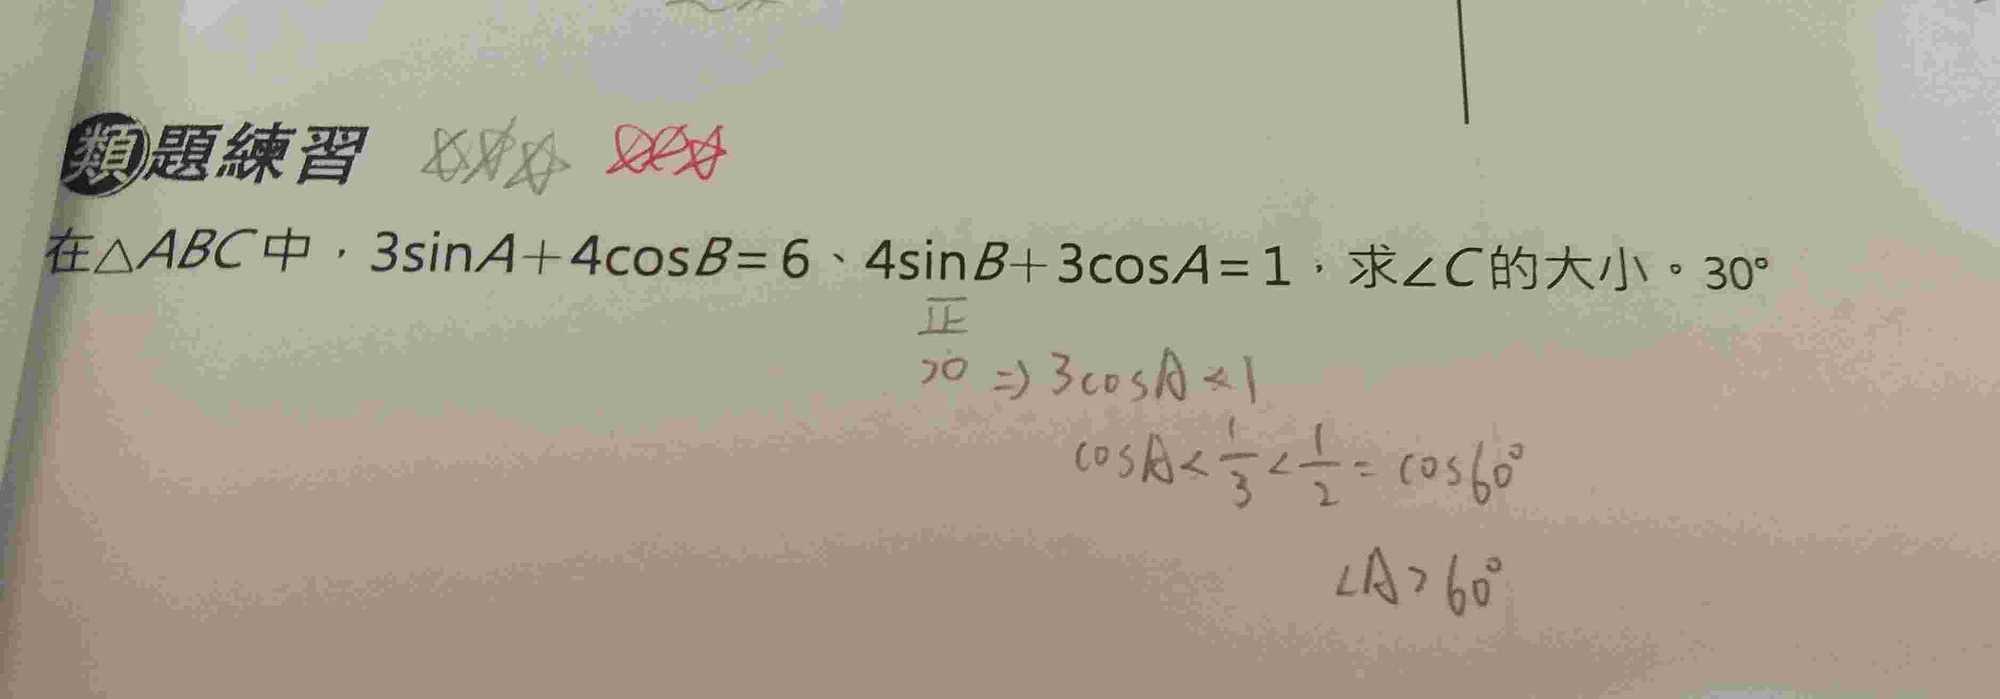 類題練習
在△ABC中，3sinA+4cosB=6、4sinB+3cosA=1，求∠C的大小。30°
正
>0 ⇒ 3cosA<1
cosA<1/3<1/2=cos60°
∠A>60°